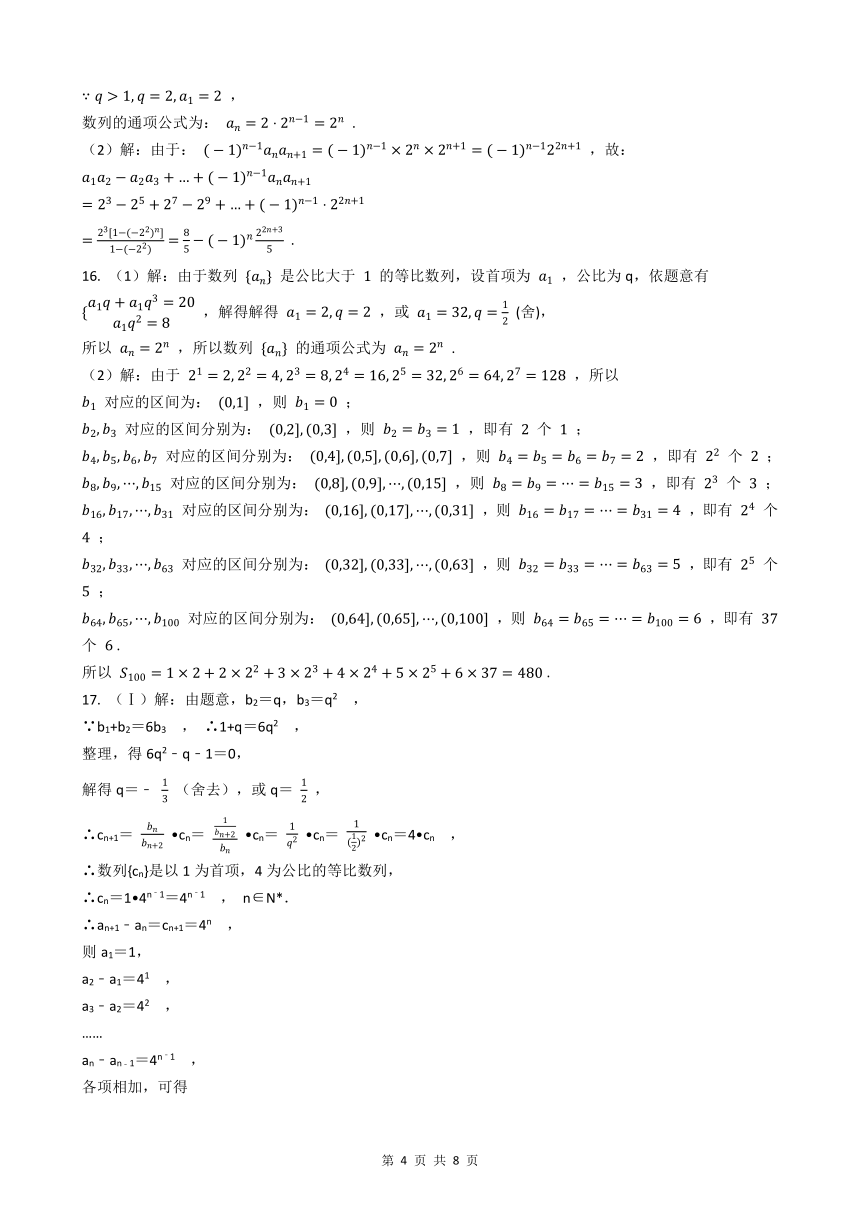 ∵ q > 1, q = 2, a₁ = 2 ，
数列的通项公式为： aₙ = 2 · 2ⁿ⁻¹ = 2ⁿ .
（2）解：由于： （−1）ⁿ⁻¹aₙaₙ₊₁ = （−1）ⁿ⁻¹ × 2ⁿ × 2ⁿ⁺¹ = （−1）ⁿ⁻¹2²ⁿ⁺¹ ，故：
a₁a₂ − a₂a₃ + … + （−1）ⁿ⁻¹aₙaₙ₊₁
= 2³ − 2⁵ + 2⁷ − 2⁹ + … + （−1）ⁿ⁻¹ · 2²ⁿ⁺¹
= 2³[1−(−2²)ⁿ]/1−(−2²) = 8/5 − （−1）ⁿ 2²ⁿ⁺³/5 .
16. （1）解：由于数列 {aₙ} 是公比大于 1 的等比数列，设首项为 a₁ ，公比为 q，依题意有
{a₁q + a₁q³ = 20
a₁q² = 8 ，解得解得 a₁ = 2, q = 2 ，或 a₁ = 32, q = 1/2 (舍)，
所以 aₙ = 2ⁿ ，所以数列 {aₙ} 的通项公式为 aₙ = 2ⁿ .
（2）解：由于 2¹ = 2, 2² = 4, 2³ = 8, 2⁴ = 16, 2⁵ = 32, 2⁶ = 64, 2⁷ = 128 ，所以
b₁ 对应的区间为： (0,1] ，则 b₁ = 0 ；
b₂, b₃ 对应的区间分别为： (0,2], (0,3] ，则 b₂ = b₃ = 1 ，即有 2 个 1 ；
b₄, b₅, b₆, b₇ 对应的区间分别为： (0,4], (0,5], (0,6], (0,7] ，则 b₄ = b₅ = b₆ = b₇ = 2 ，即有 2² 个 2 ；
b₈, b₉, ⋯, b₁₅ 对应的区间分别为： (0,8], (0,9], ⋯, (0,15] ，则 b₈ = b₉ = ⋯ = b₁₅ = 3 ，即有 2³ 个 3 ；
b₁₆, b₁₇, ⋯, b₃₁ 对应的区间分别为： (0,16], (0,17], ⋯, (0,31] ，则 b₁₆ = b₁₇ = ⋯ = b₃₁ = 4 ，即有 2⁴ 个
4 ；
b₃₂, b₃₃, ⋯, b₆₃ 对应的区间分别为： (0,32], (0,33], ⋯, (0,63] ，则 b₃₂ = b₃₃ = ⋯ = b₆₃ = 5 ，即有 2⁵ 个
5 ；
b₆₄, b₆₅, ⋯, b₁₀₀ 对应的区间分别为： (0,64], (0,65], ⋯, (0,100] ，则 b₆₄ = b₆₅ = ⋯ = b₁₀₀ = 6 ，即有 37
个 6 .
所以 S₁₀₀ = 1 × 2 + 2 × 2² + 3 × 2³ + 4 × 2⁴ + 5 × 2⁵ + 6 × 37 = 480 .
17. （Ⅰ）解：由题意，b₂＝q，b₃＝q² ，
∵b₁+b₂＝6b₃ ， ∴1+q＝6q² ，
整理，得 6q²﹣q﹣1＝0，
解得 q＝﹣ 1/3 （舍去），或 q＝ 1/2 ，
∴cₙ₊₁＝ bₙ/bₙ₊₂ •cₙ＝ (1/bₙ₊₂)/bₙ •cₙ＝ 1/q² •cₙ＝ 1/(1/2)² •cₙ＝4•cₙ ，
∴数列{cₙ}是以 1 为首项，4 为公比的等比数列，
∴cₙ＝1•4ⁿ⁻¹＝4ⁿ⁻¹ ， n∈N*.
∴aₙ₊₁﹣aₙ＝cₙ₊₁＝4ⁿ ，
则 a₁＝1，
a₂﹣a₁＝4¹ ，
a₃﹣a₂＝4² ，
……
aₙ﹣aₙ₋₁＝4ⁿ⁻¹ ，
各项相加，可得
第 4 页 共 8 页